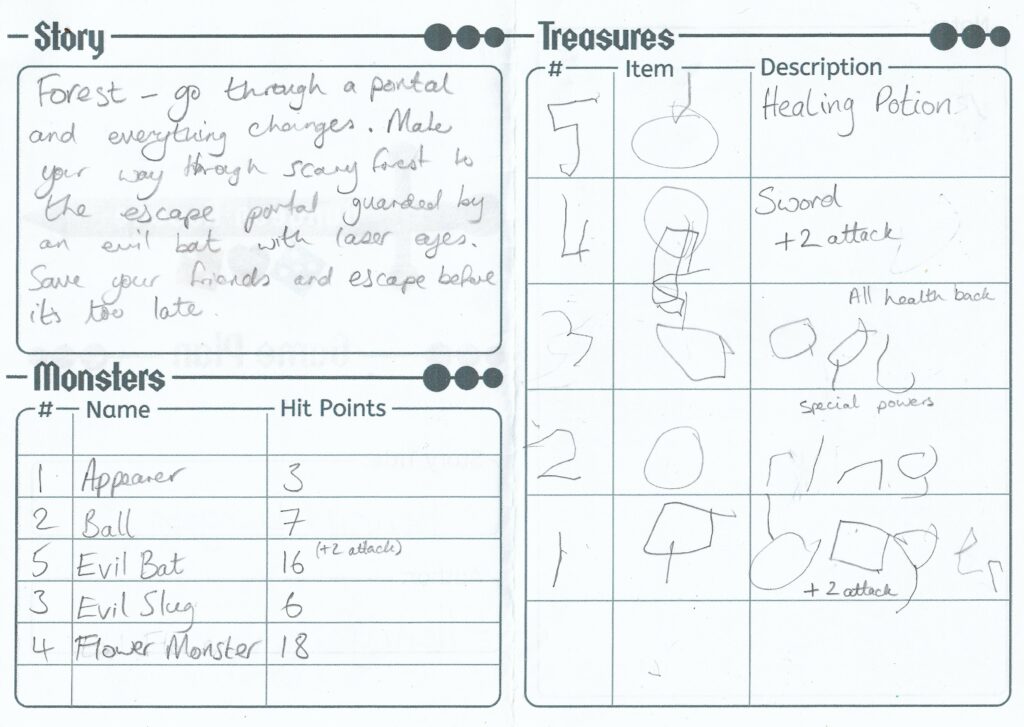 Story
Forest – go through a portal
and everything changes. Make
your way through scary forest to
the escape portal guarded by
an evil bat with laser eyes.
Save your friends and escape before
it's too late.
Monsters
# Name Hit Points
1 Appearer 3
2 Ball 7
5 Evil Bat 16 (+2 attack)
3 Evil Slug 6
4 Flower Monster 18
Treasures
# Item Description
5 Healing Potion
4 Sword
+2 attack
All health back
3
special powers
2 ring
1
+2 attack